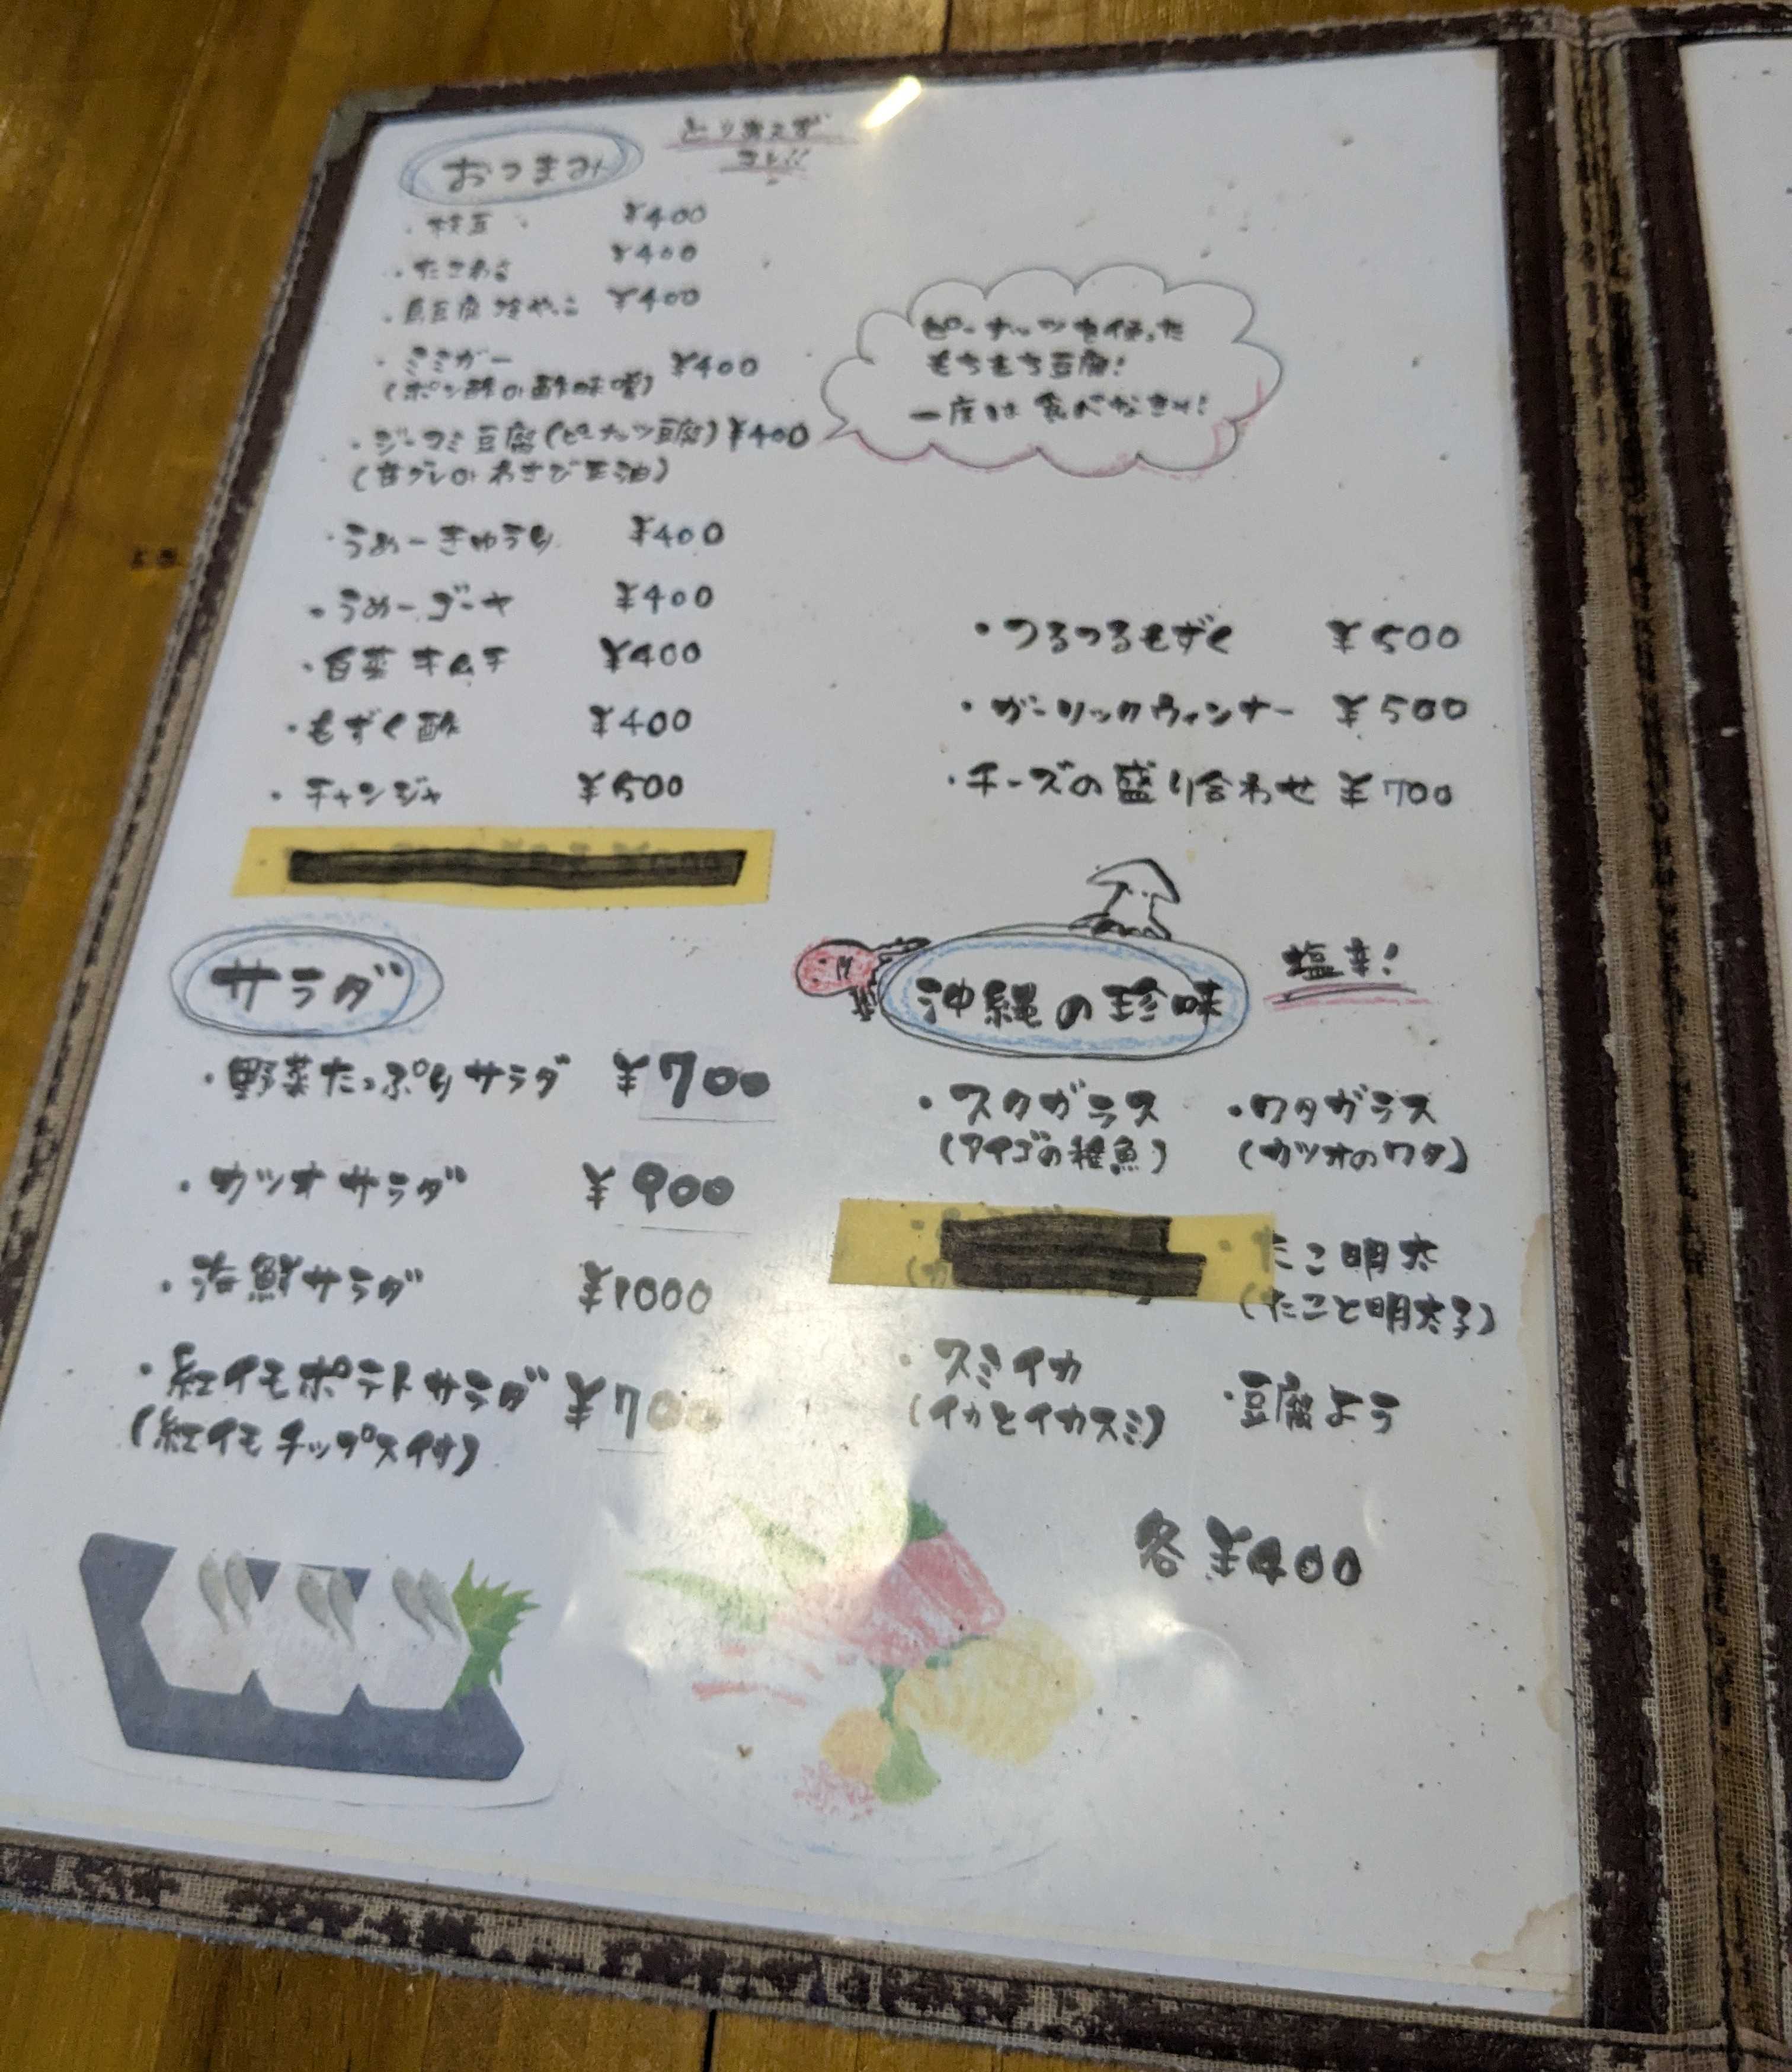 おつまみ
とりあえず
コレ!!
・枝豆 ¥400
・たこわさ ¥400
・島豆腐冷やっこ ¥400
・ミミガー ¥400
(ポン酢 or 酢味噌)
・ジーマミ豆腐(ピーナッツ豆腐) ¥400
(甘ダレ or わさび正油)
ピーナッツを使った
もちもち豆腐!
一度は食べなきゃ!
・うめーきゅうり ¥400
・うめーゴーヤ ¥400
・白菜キムチ ¥400
・もずく酢 ¥400
・チャンジャ ¥500
・つるつるもずく ¥500
・ガーリックウィンナー ¥500
・チーズの盛り合わせ ¥700
サラダ
・野菜たっぷりサラダ ¥700
・カツオサラダ ¥900
・海鮮サラダ ¥1000
・紅イモポテトサラダ ¥700
(紅イモチップス付)
沖縄の珍味
塩辛!
・スクガラス ・ワタガラス
(アイゴの稚魚) (カツオのワタ)
・たこ明太
(たこと明太子)
・スミイカ ・豆腐よう
(イカとイカスミ)
各¥400